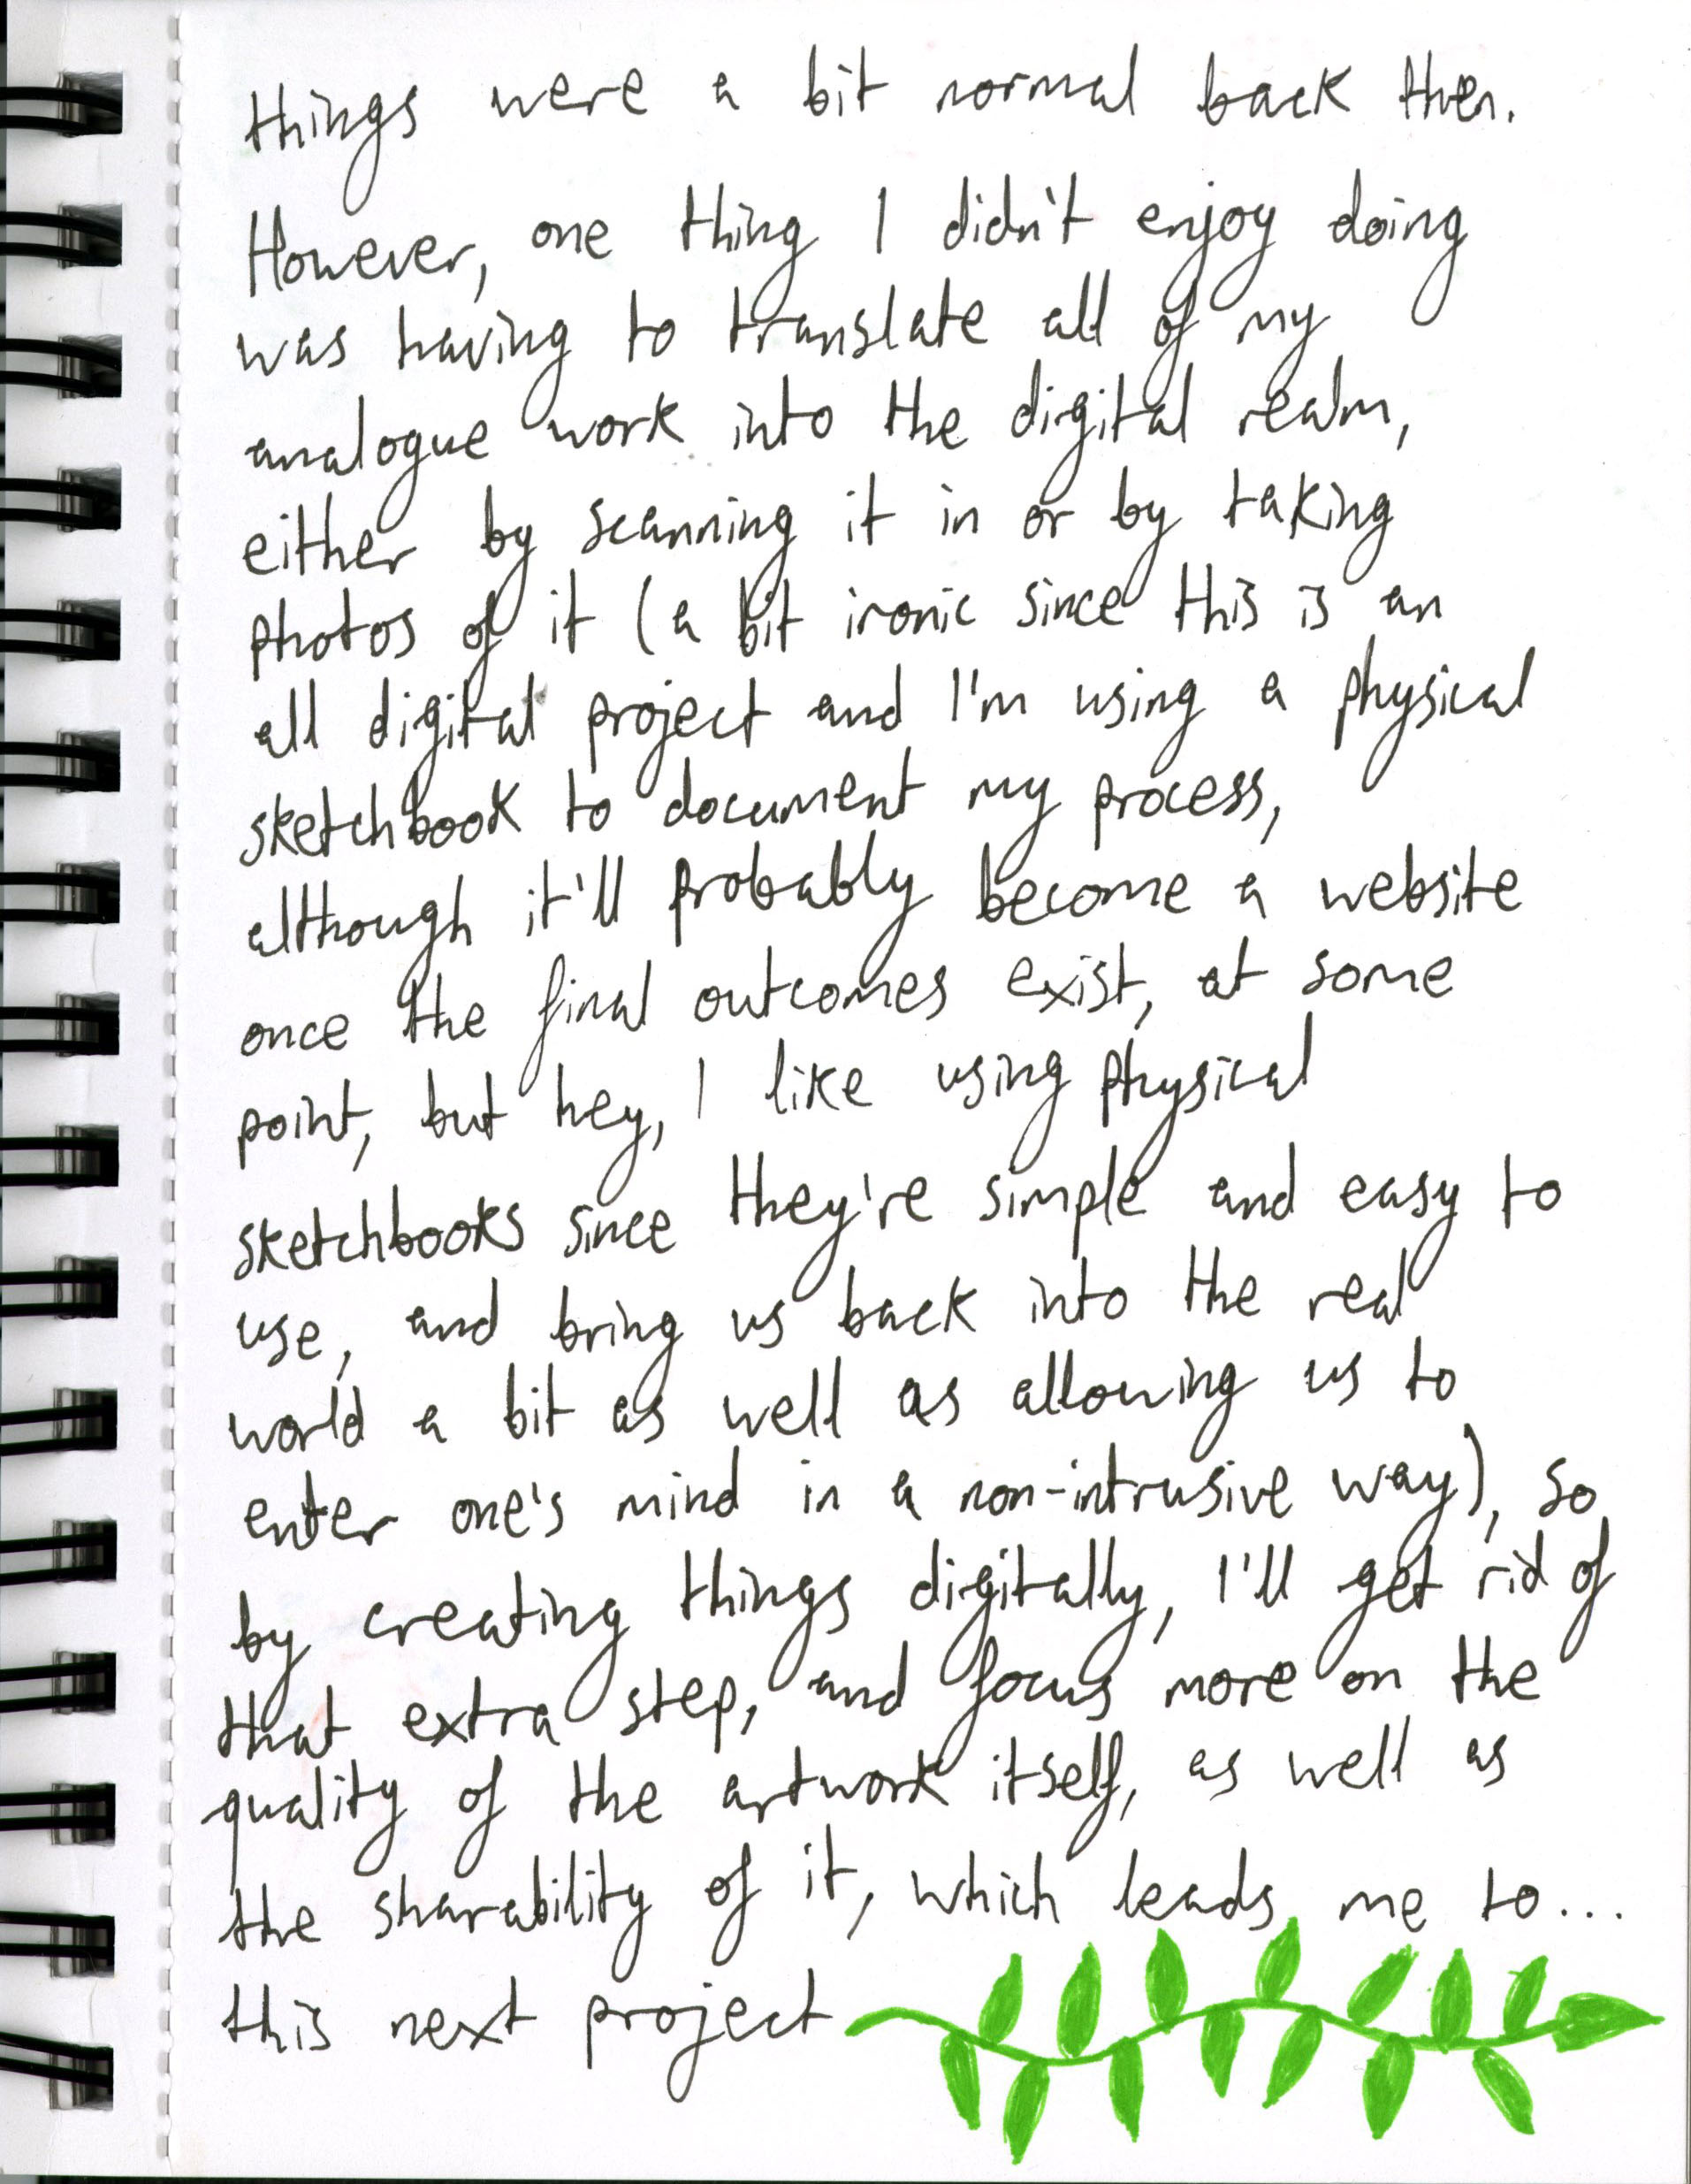 things were a bit normal back then.
However, one thing I didn't enjoy doing
was having to translate all of my
analogue work into the digital realm,
either by scanning it in or by taking
photos of it (a bit ironic since this is an
all digital project and I'm using a physical
sketchbook to document my process,
although it'll probably become a website
once the final outcomes exist, at some
point, but hey, I like using physical
sketchbooks since they're simple and easy to
use, and bring us back into the real
world a bit as well as allowing us to
enter one's mind in a non-intrusive way), so
by creating things digitally, I'll get rid of
that extra step, and focus more on the
quality of the artwork itself, as well as
the sharability of it, which leads me to...
this next project